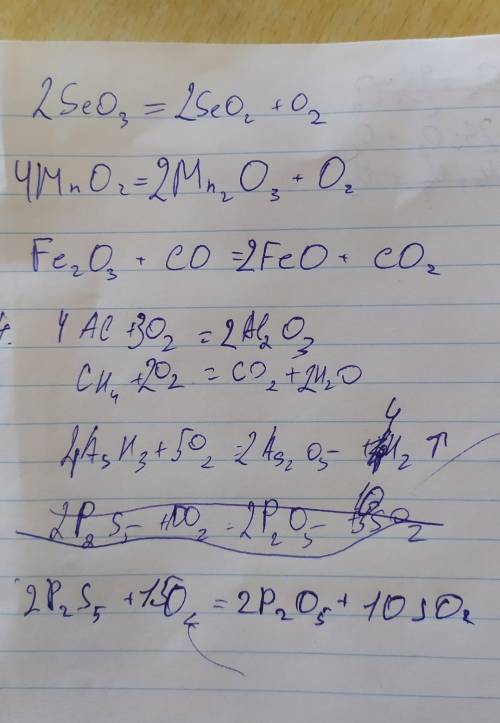 2SeO₃ = 2SeO₂ + O₂
4MnO₂ = 2Mn₂O₃ + O₂
Fe₂O₃ + CO = 2FeO + CO₂
4Al + 3O₂ = 2Al₂O₃
CH₄ + 2O₂ = CO₂ + 2H₂O
4AsH₃ + 5O₂ = 2As₂O₅ + H₂ ↑
2P₂S₅ + O₂ = 2P₂O₅ + SO₂
2P₂S₅ + 15O₂ = 2P₂O₅ + 10SO₂